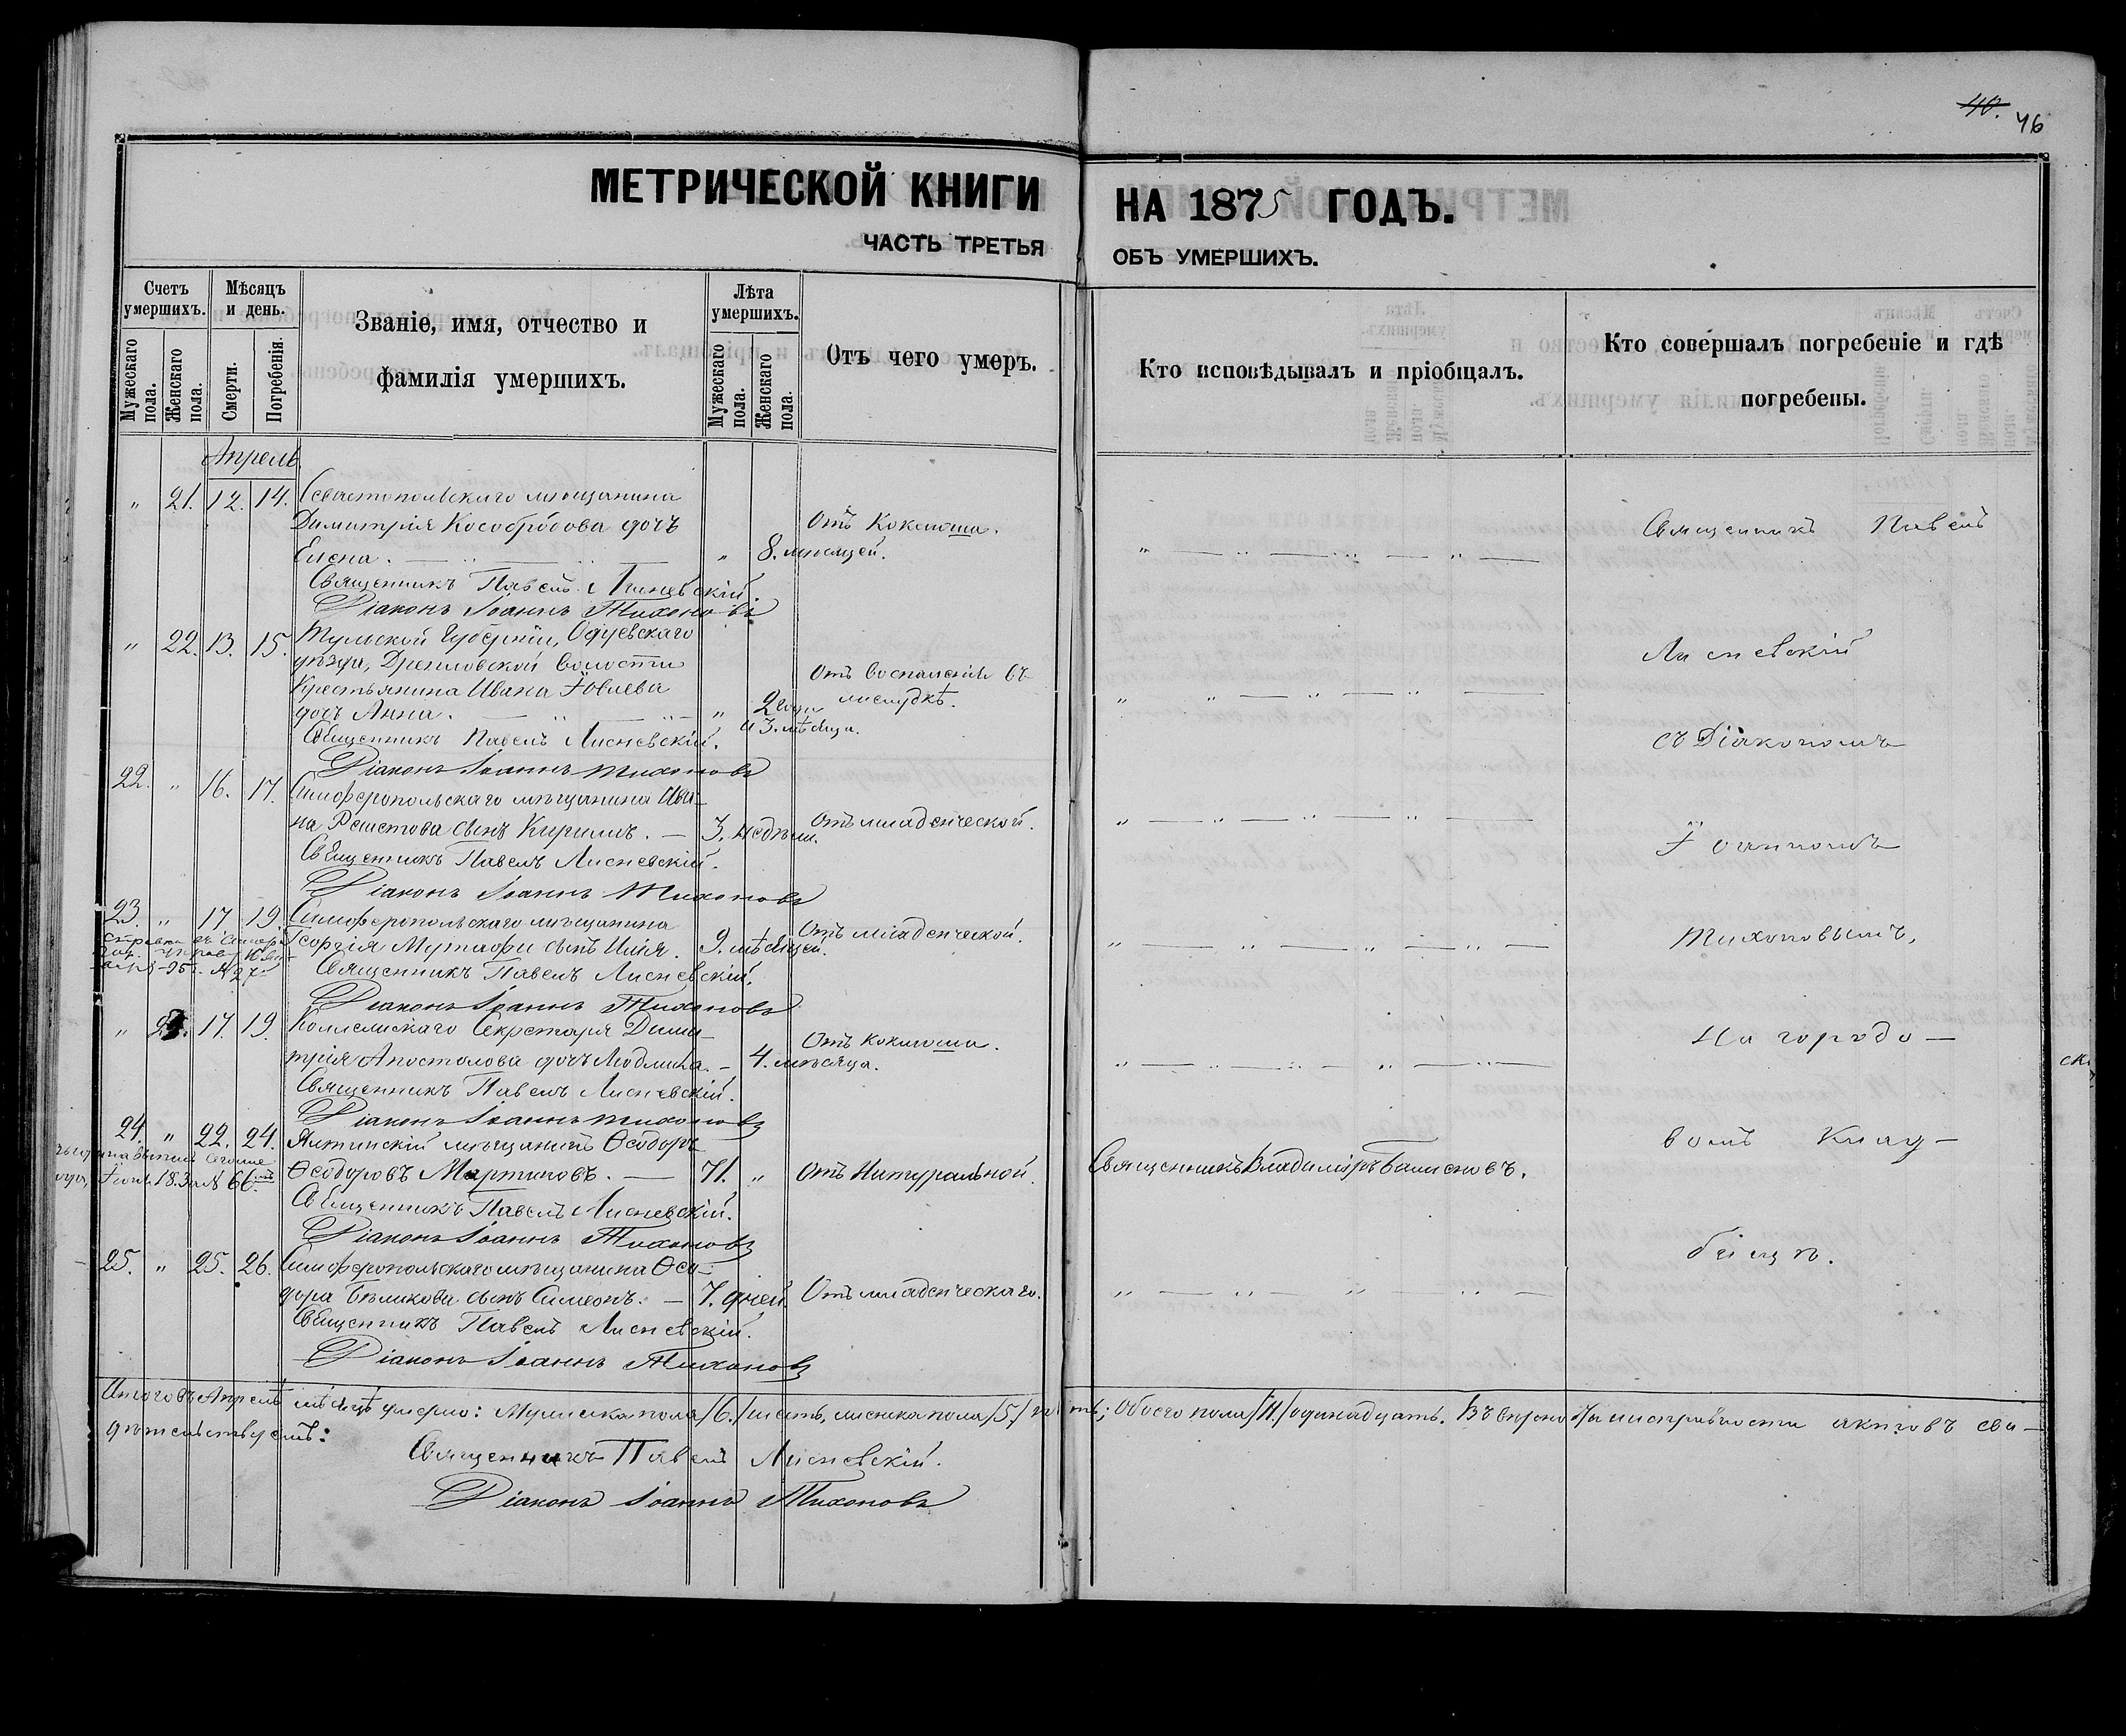 40.
46
МЕТРИЧЕСКОЙ КНИГИ НА 1875 ГОДЪ.
ЧАСТЬ ТРЕТЬЯ ОБЪ УМЕРШИХЪ.
Счетъ умершихъ.
Мужескаго пола.
Женскаго пола.
Мѣсяцъ и день.
Смерти.
Погребенія.
Званіе, имя, отчество и
фамилія умершихъ.
Лѣта умершихъ.
Мужескаго пола.
Женскаго пола.
Отъ чего умеръ.
Кто исповѣдывалъ и пріобщалъ.
Кто совершалъ погребеніе и гдѣ
погребены.
Апрель
" 21. 12. 14. Севастопольскаго мѣщанина
Димитрія Кособродова дочь
Елена. " 8. мѣсяцей. Отъ Коклюша.
Священникъ Павелъ Лисневскій.
Діаконъ Іоаннъ Тихоновъ
" 22. 13. 15. Тульской Губерніи, Одуевскаго
уѣзда, волости
Крестьянина Ивана Іовлева
дочь Анна. " 2 года
и 3. мѣсяца. Отъ воспаленія въ
желудкѣ.
Священникъ Павелъ Лисневскій.
Діаконъ Іоаннъ Тихоновъ
22. " 16. 17. Симферопольскаго мѣщанина Ива-
на Решетова сынъ Кириллъ. — 3. недѣли. Отъ младенческой.
Священникъ Павелъ Лисневскій.
Діаконъ Іоаннъ Тихоновъ
23. " 17. 19. Симферопольскаго мѣщанина
Георгія Мутафи сынъ Илія. 9. мѣсяцей. Отъ младенческой.
Священникъ Павелъ Лисневскій.
Діаконъ Іоаннъ Тихоновъ
" 23. 17. 19. Коллежскаго Секретаря Дими-
трія Апостолова дочь Людмила. — 4. мѣсяца. Отъ коклюша.
Священникъ Павелъ Лисневскій.
Діаконъ Іоаннъ Тихоновъ
24. " 22. 24. Ялтинскій мѣщанинъ Ѳеодоръ
Ѳеодоровъ Мартиновъ. — 71. " Отъ Натуральной. Священникъ Владиміръ Баллсновъ.
Священникъ Павелъ Лисневскій.
Діаконъ Іоаннъ Тихоновъ
25. " 25. 26. Симферопольскаго мѣщанина Ѳео-
дора Бѣликова сынъ Симеонъ. — 7. дней. Отъ младенческаго.
Священникъ Павелъ Лисневскій.
Діаконъ Іоаннъ Тихоновъ
Священникъ Павелъ
Лисневскій
съ Діакономъ
Іоанномъ
Тихоновымъ,
На городс-
комъ Клад-
бищѣ.
Итого въ Апрелѣ мѣсяцѣ умерло: Мужеска пола /6./ шесть, женска пола /5./ пять; Обоего пола /11./ одинадцать. Въ вѣрно- и исправности актовъ сви-
дѣтельствуемъ:
Священникъ Павелъ Лисневскій.
Діаконъ Іоаннъ Тихоновъ